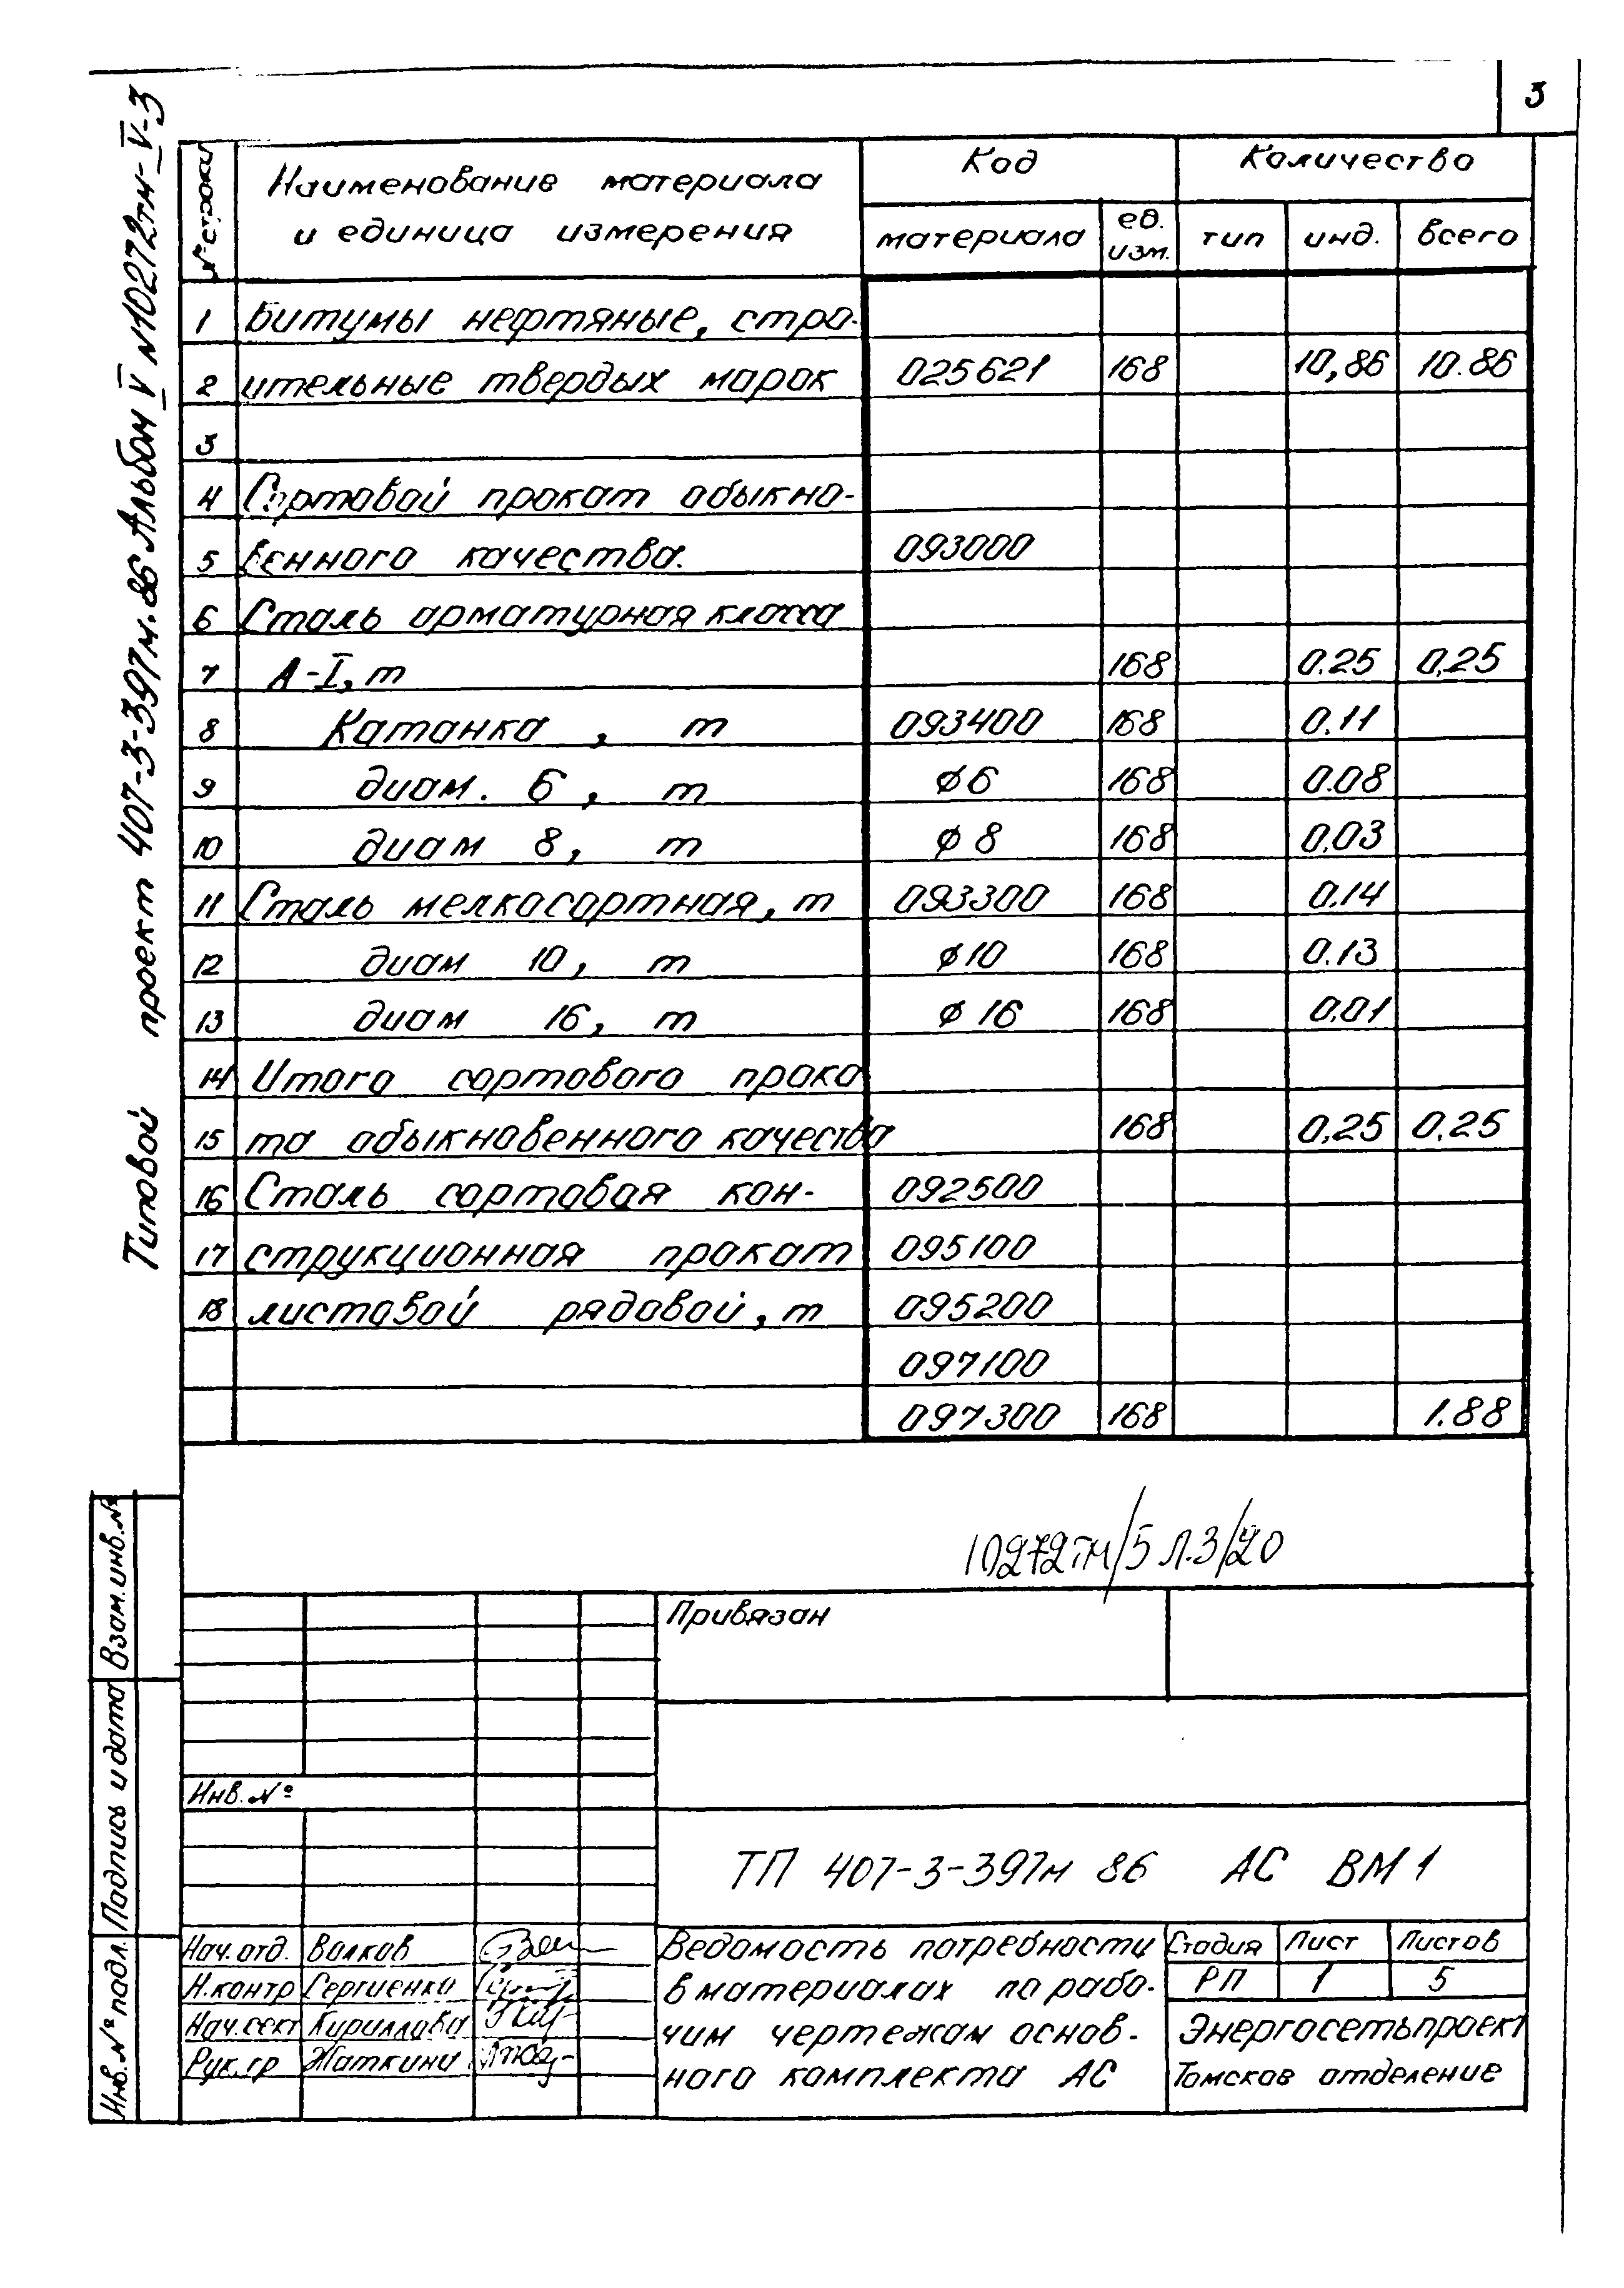 3
Типовой проект 407-3-397м.86 Альбом V №10272тм-V-3
№ строки
Наименование материала
и единица измерения
Код
Количество
материала
ед.
изм.
тип
инд.
всего
1 Битумы нефтяные, стро-
2 ительные твердых марок 025621 168 10,86 10.86
3
4 Сортовой прокат обыкно-
5 венного качества. 093000
6 Сталь арматурная класса
7 А-I, т 168 0.25 0,25
8 Катанка , т 093400 168 0.11
9 диам. 6, т ø6 168 0.08
10 диам 8, т ø 8 168 0.03
11 Сталь мелкосортная, т 093300 168 0.14
12 диам 10, т ø10 168 0.13
13 диам 16, т ø 16 168 0,01
14 Итого сортового прока
15 та обыкновенного качества 168 0,25 0.25
16 Сталь сортовая кон- 092500
17 струкционная прокат 095100
18 листовой рядовой, т 095200
097100
097300 168 1.88
10272тм/5 л.3/20
Привязан
Инв. №
ТП 407-3-397м 86 АС ВМ 1
Нач. отд. Волков
Н.контр Сергиенко
Нач.сект Кириллова
Рук.гр Жаткина
Ведомость потребности
в материалах по рабо-
чим чертежам основ-
ного комплекта АС
Стадия Лист Листов
РП 1 5
Энергосетьпроект
Томское отделение
Взам.инв.№
Подпись и дата
Инв.№ подл.